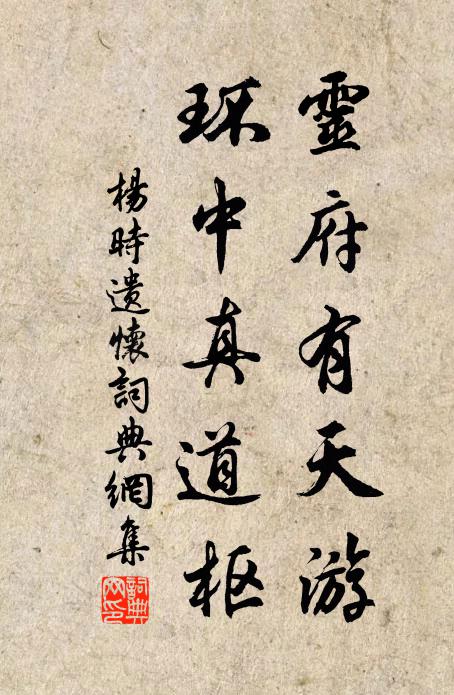 靈府有天游
环中真道枢
楊時遣懷詞典網集
詞典网印